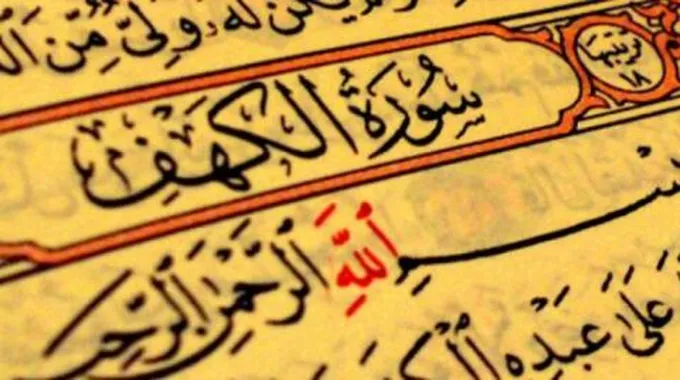 يَكُن لَّهُۥ وَلِىٌّ مِّنَ
سُورَةُ الكَهْفِ
تَرْتِيبُهَا ١٨
بِسْمِ ٱللَّهِ ٱلرَّحْمَٰنِ ٱلرَّحِ
عَلَىٰ عَبْدِهِ ٱلْكِ